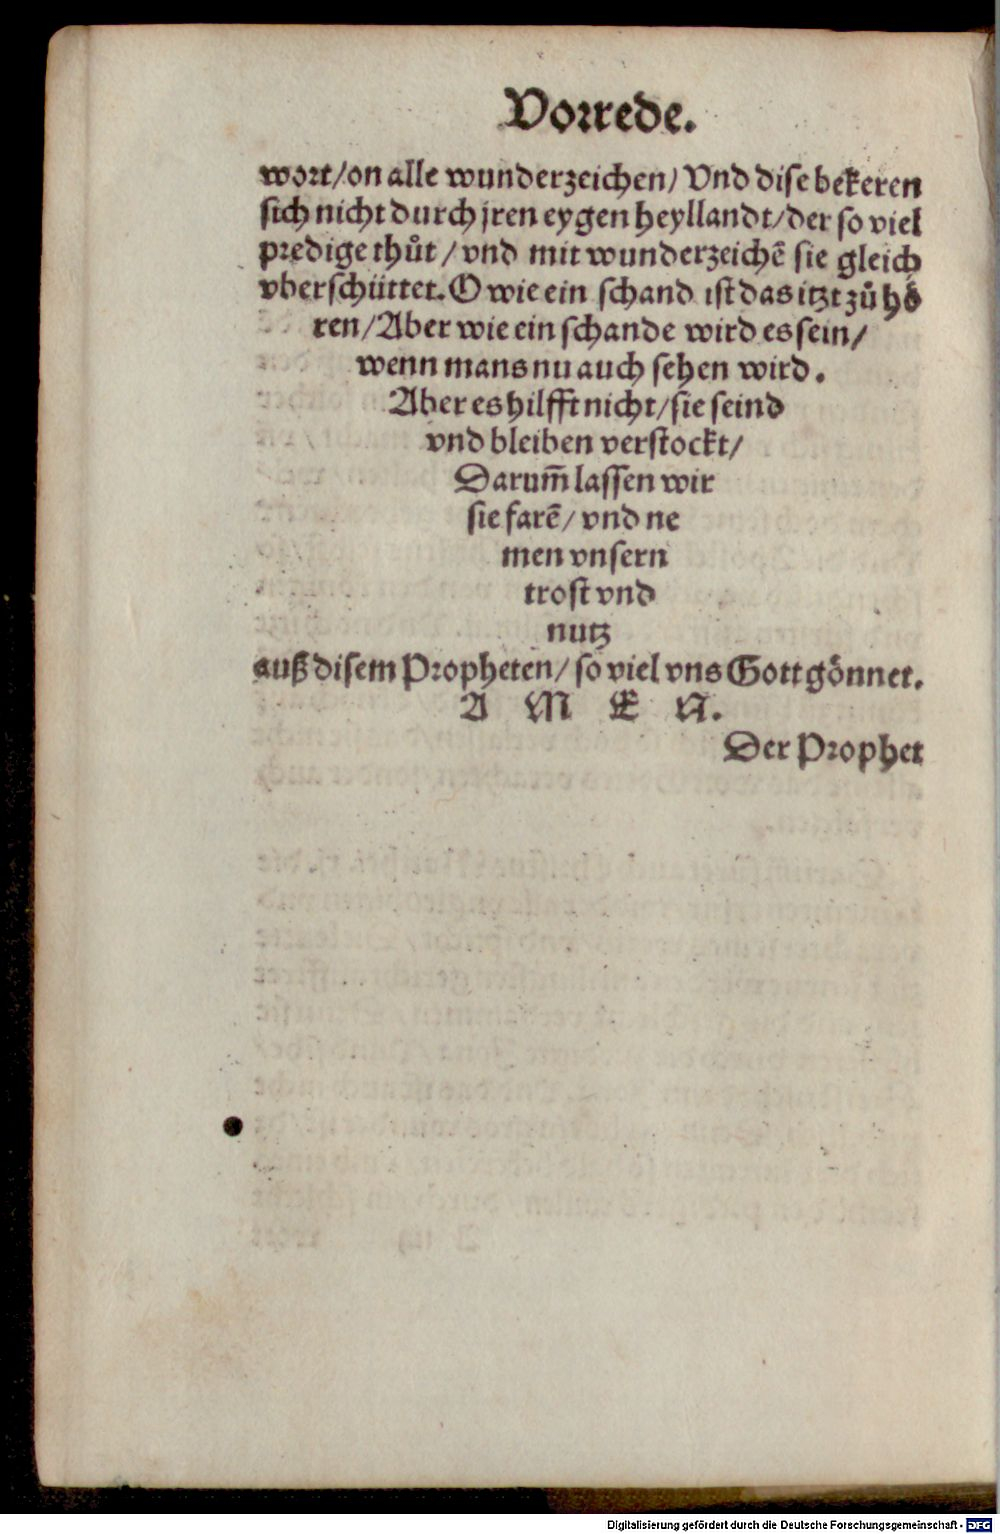 Vorrede.
wort/on alle wunderzeichen/ Vnd dise bekeren
sich nicht durch jren eygen heyllandt/der so viel
predige thůt / vnd mit wunderzeichẽ sie gleich
vberschüttet. O wie ein schand ist das itzt zů hö
ren/Aber wie ein schande wird es sein/
wenn mans nu auch sehen wird.
Aber es hilfft nicht/sie seind
vnd bleiben verstockt/
Darum̃ lassen wir
sie farẽ/ vnd ne
men vnsern
trost vnd
nutz
auß disem Propheten/ so viel vns Gott gönnet.
A M E N.
Der Prophet
Digitalisierung gefördert durch die Deutsche Forschungsgemeinschaft - DFG